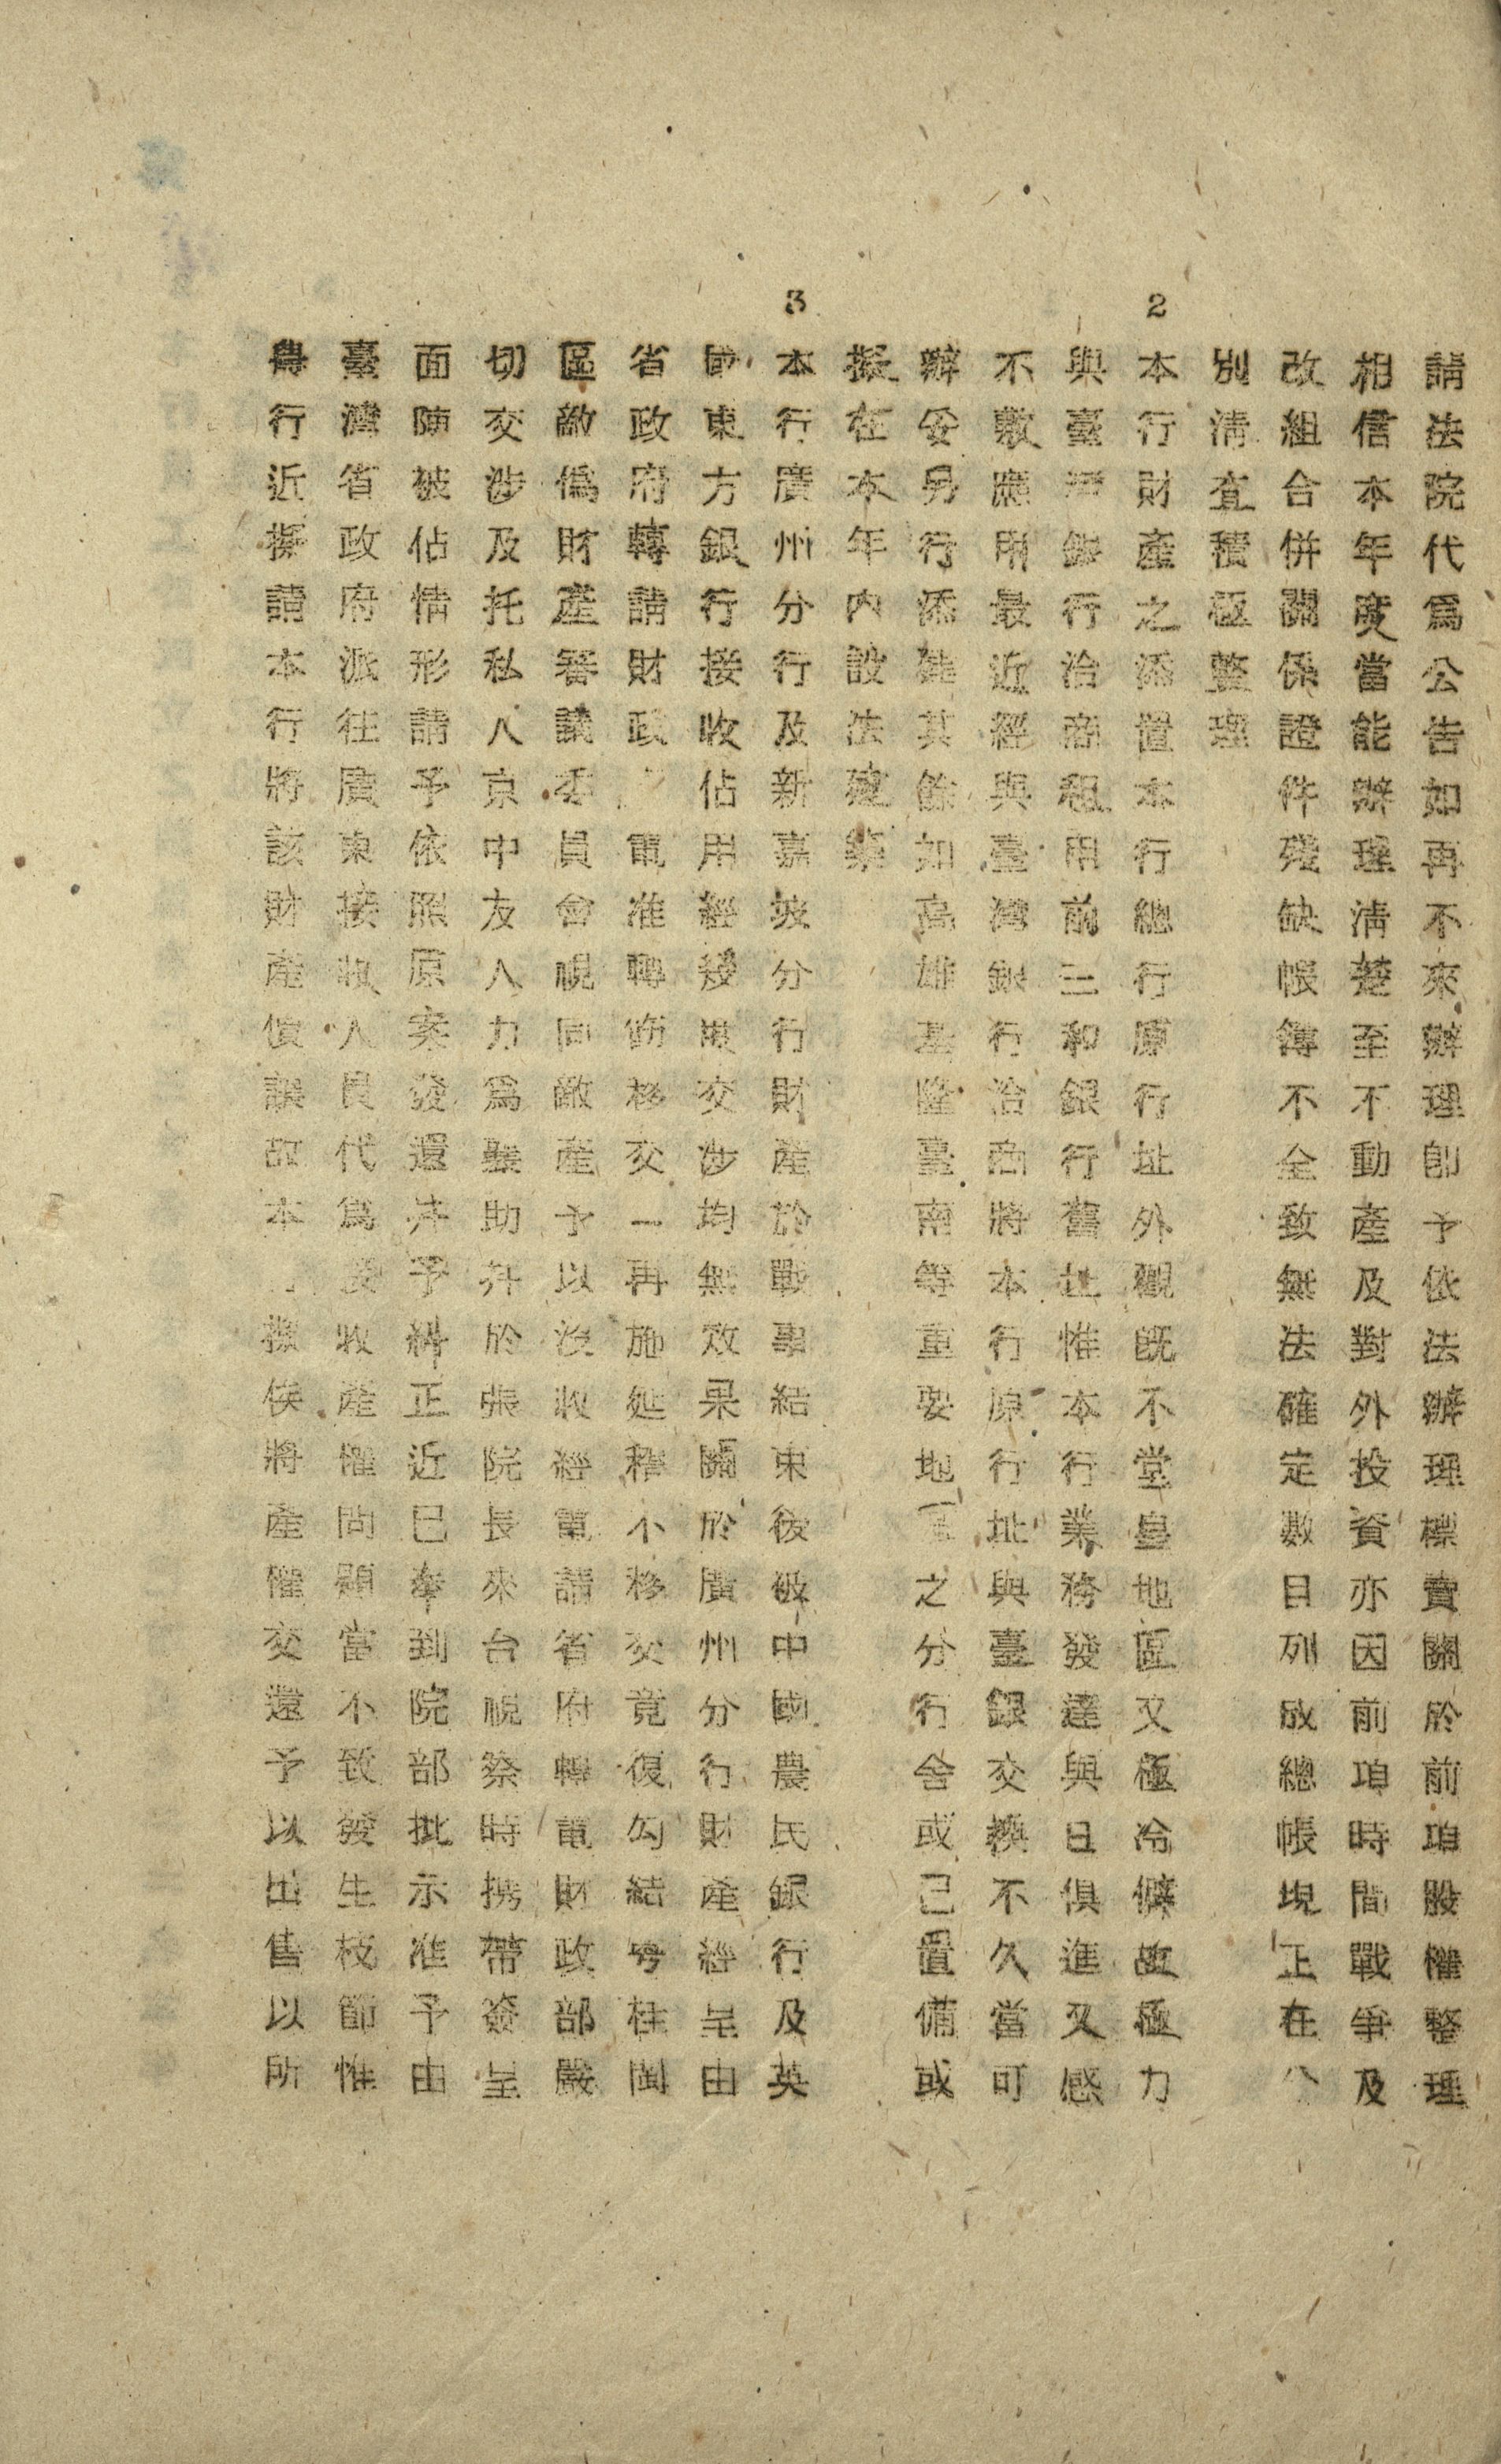 請法院代爲公告如再不來辦理卽予依法辦理標賣關於前項股權整理
相信本年度當能辦理清楚至不動產及對外投資亦因前項時間戰爭及
改組合併關係證件殘缺帳簿不全致無法確定數目列成總帳現正在分
別清查積極整理
2
本行財產之添置本行總行原行址外觀旣不堂皇地區又極冷僻故極力
與臺灣銀行洽商租用前三和銀行舊址惟本行業務發達與日俱進又感
不敷應用最近經與臺灣銀行洽商將本行原行址與臺銀交換不久當可
辦妥另行添建其餘如高雄基隆臺南等重要地區之分行舍或已置備或
擬在本年內設法建築
3
本行廣州分行及新嘉坡分行財產於戰事結束後被中國農民銀行及英
國東方銀行接收佔用經幾度交涉均無效果關於廣州分行財產經呈由
省政府轉請財政 電准轉飭移交一再施延稽不移交竟復勾結粤桂閩
區敵僞財產審議委員會視同敵產予以沒收經電請省府轉電財政部嚴
切交涉及托私人京中友人力爲襄助幷於張院長來台視察時携帶簽呈
面陳被佔情形請予依照原案發還幷予糾正近已奉到院部批示准予由
臺灣省政府派往廣東接收人員代爲接收產權問題當不致發生枝節惟
粤行近擬請本行將該財產價讓故本 擬俟將產權交還予以出售以所